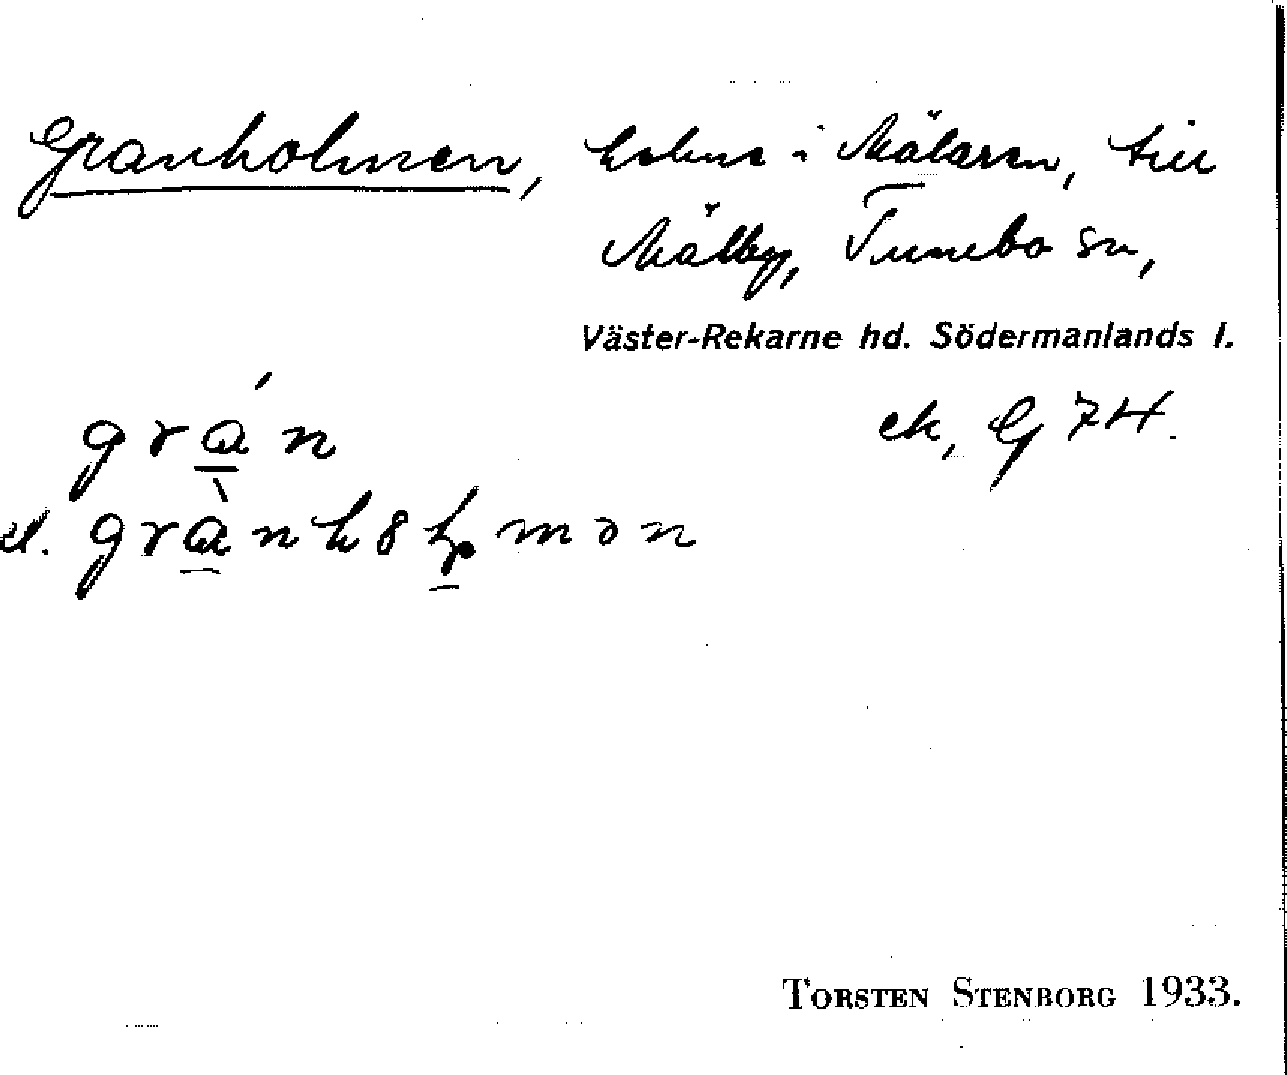 Granholmen, holme i Mälaren, till
Mälby, Tumbo sn,
Väster-Rekarne hd. Södermanlands l.
ek, G 74.
grán
el. grànhoḷmən
TORSTEN STENBORG 1933.